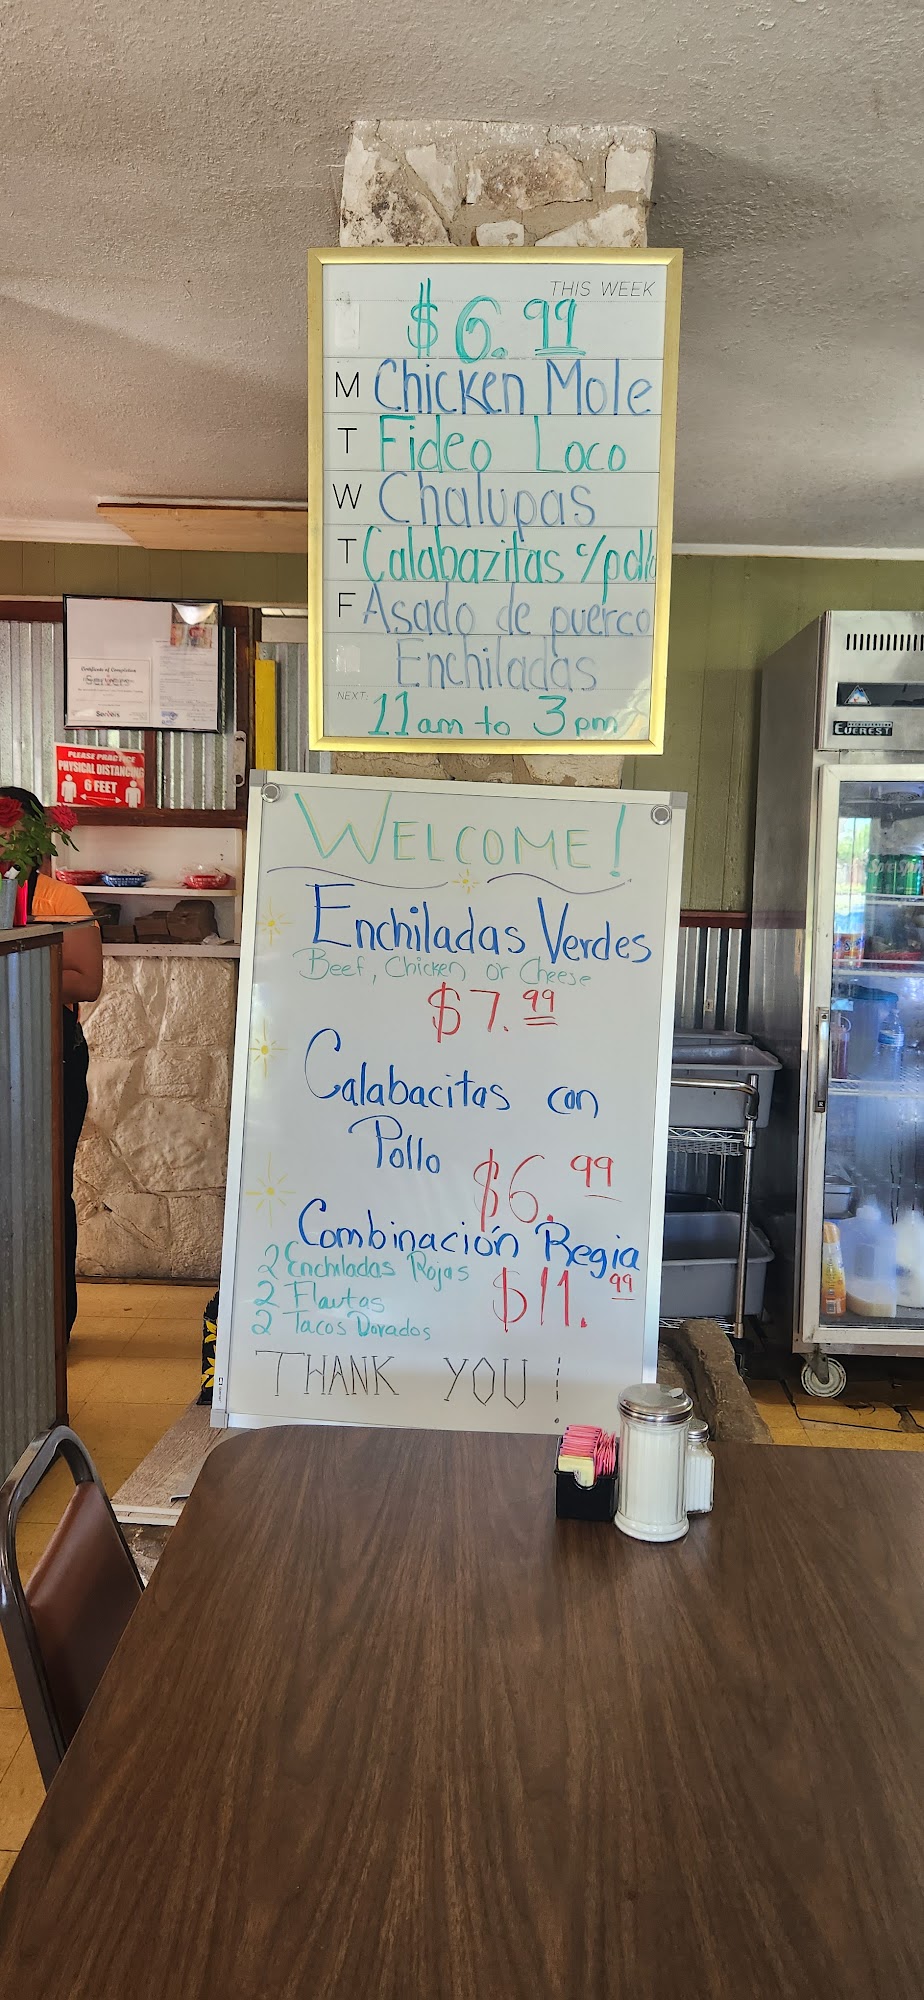 THIS WEEK
$6.99
M Chicken Mole
T Fideo Loco
W Chalupas
T Calabazitas c/pollo
F Asado de puerco
Enchiladas
NEXT:
11am to 3pm
Certificate of Completion
Servsafe
PLEASE PRACTICE
PHYSICAL DISTANCING
6 FEET
EVEREST
WELCOME!
Enchiladas Verdes
Beef, Chicken or Cheese
$7.99
Calabacitas con
Pollo
$6.99
Combinación Regia
2 Enchiladas Rojas
$11.99
2 Flautas
2 Tacos Dorados
THANK YOU!